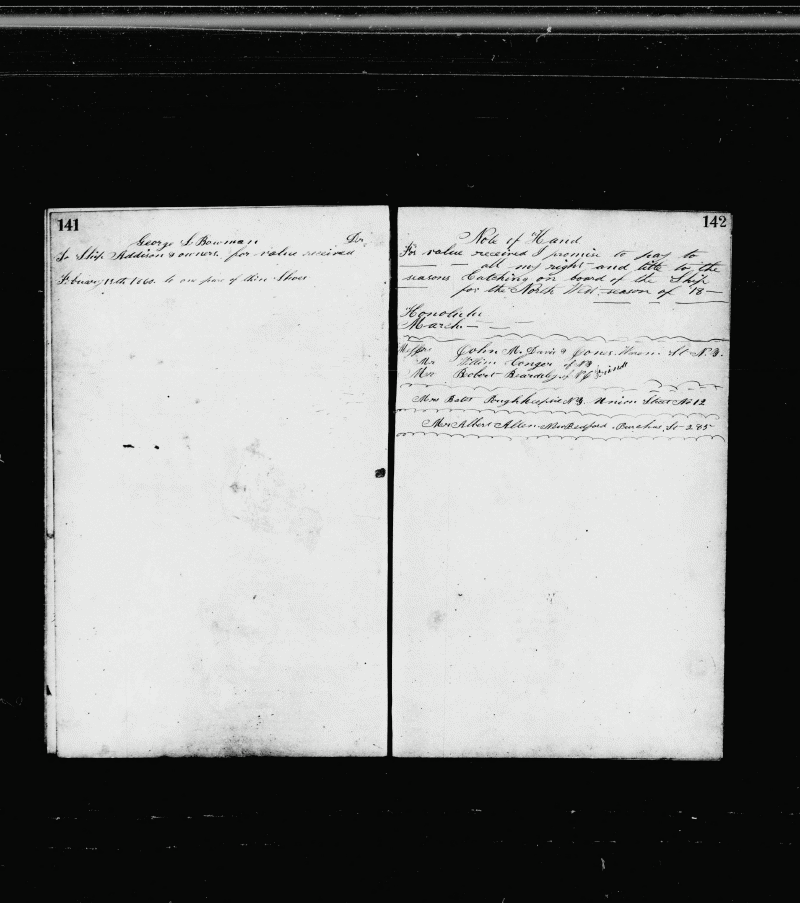 141
George L Bowman Dr,
To Ship Addison & owners. for value received
February 18th 1860. to one pair of thin Shoes
142
Note of Hand
For value received I promise to pay to
all my right and title to the
seasons Catching on board of the Ship
for the North West season of 18
Honolulu
March
Messrs John M. Davis & Jones. St N.Y.
Mr William Congor of N.B
Mr Robert Beardsley of N.Y
Mrs Bates Poughkeepsie N.Y. Union Street No 12
Mr Albert Allen. New Bedford. St 285